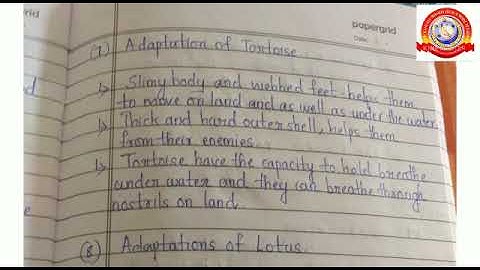 papergrid
(7) Adaptation of Tortoise
↳ Slimy body and webbed feet helps them
to move on land and as well as under the water.
↳ Thick and hard outer shell, helps them
from their enemies.
↳ Tortoise have the capacity to hold breathe
under water and they can breathe through
nostrils on land.
(8) Adaptations of Lotus.